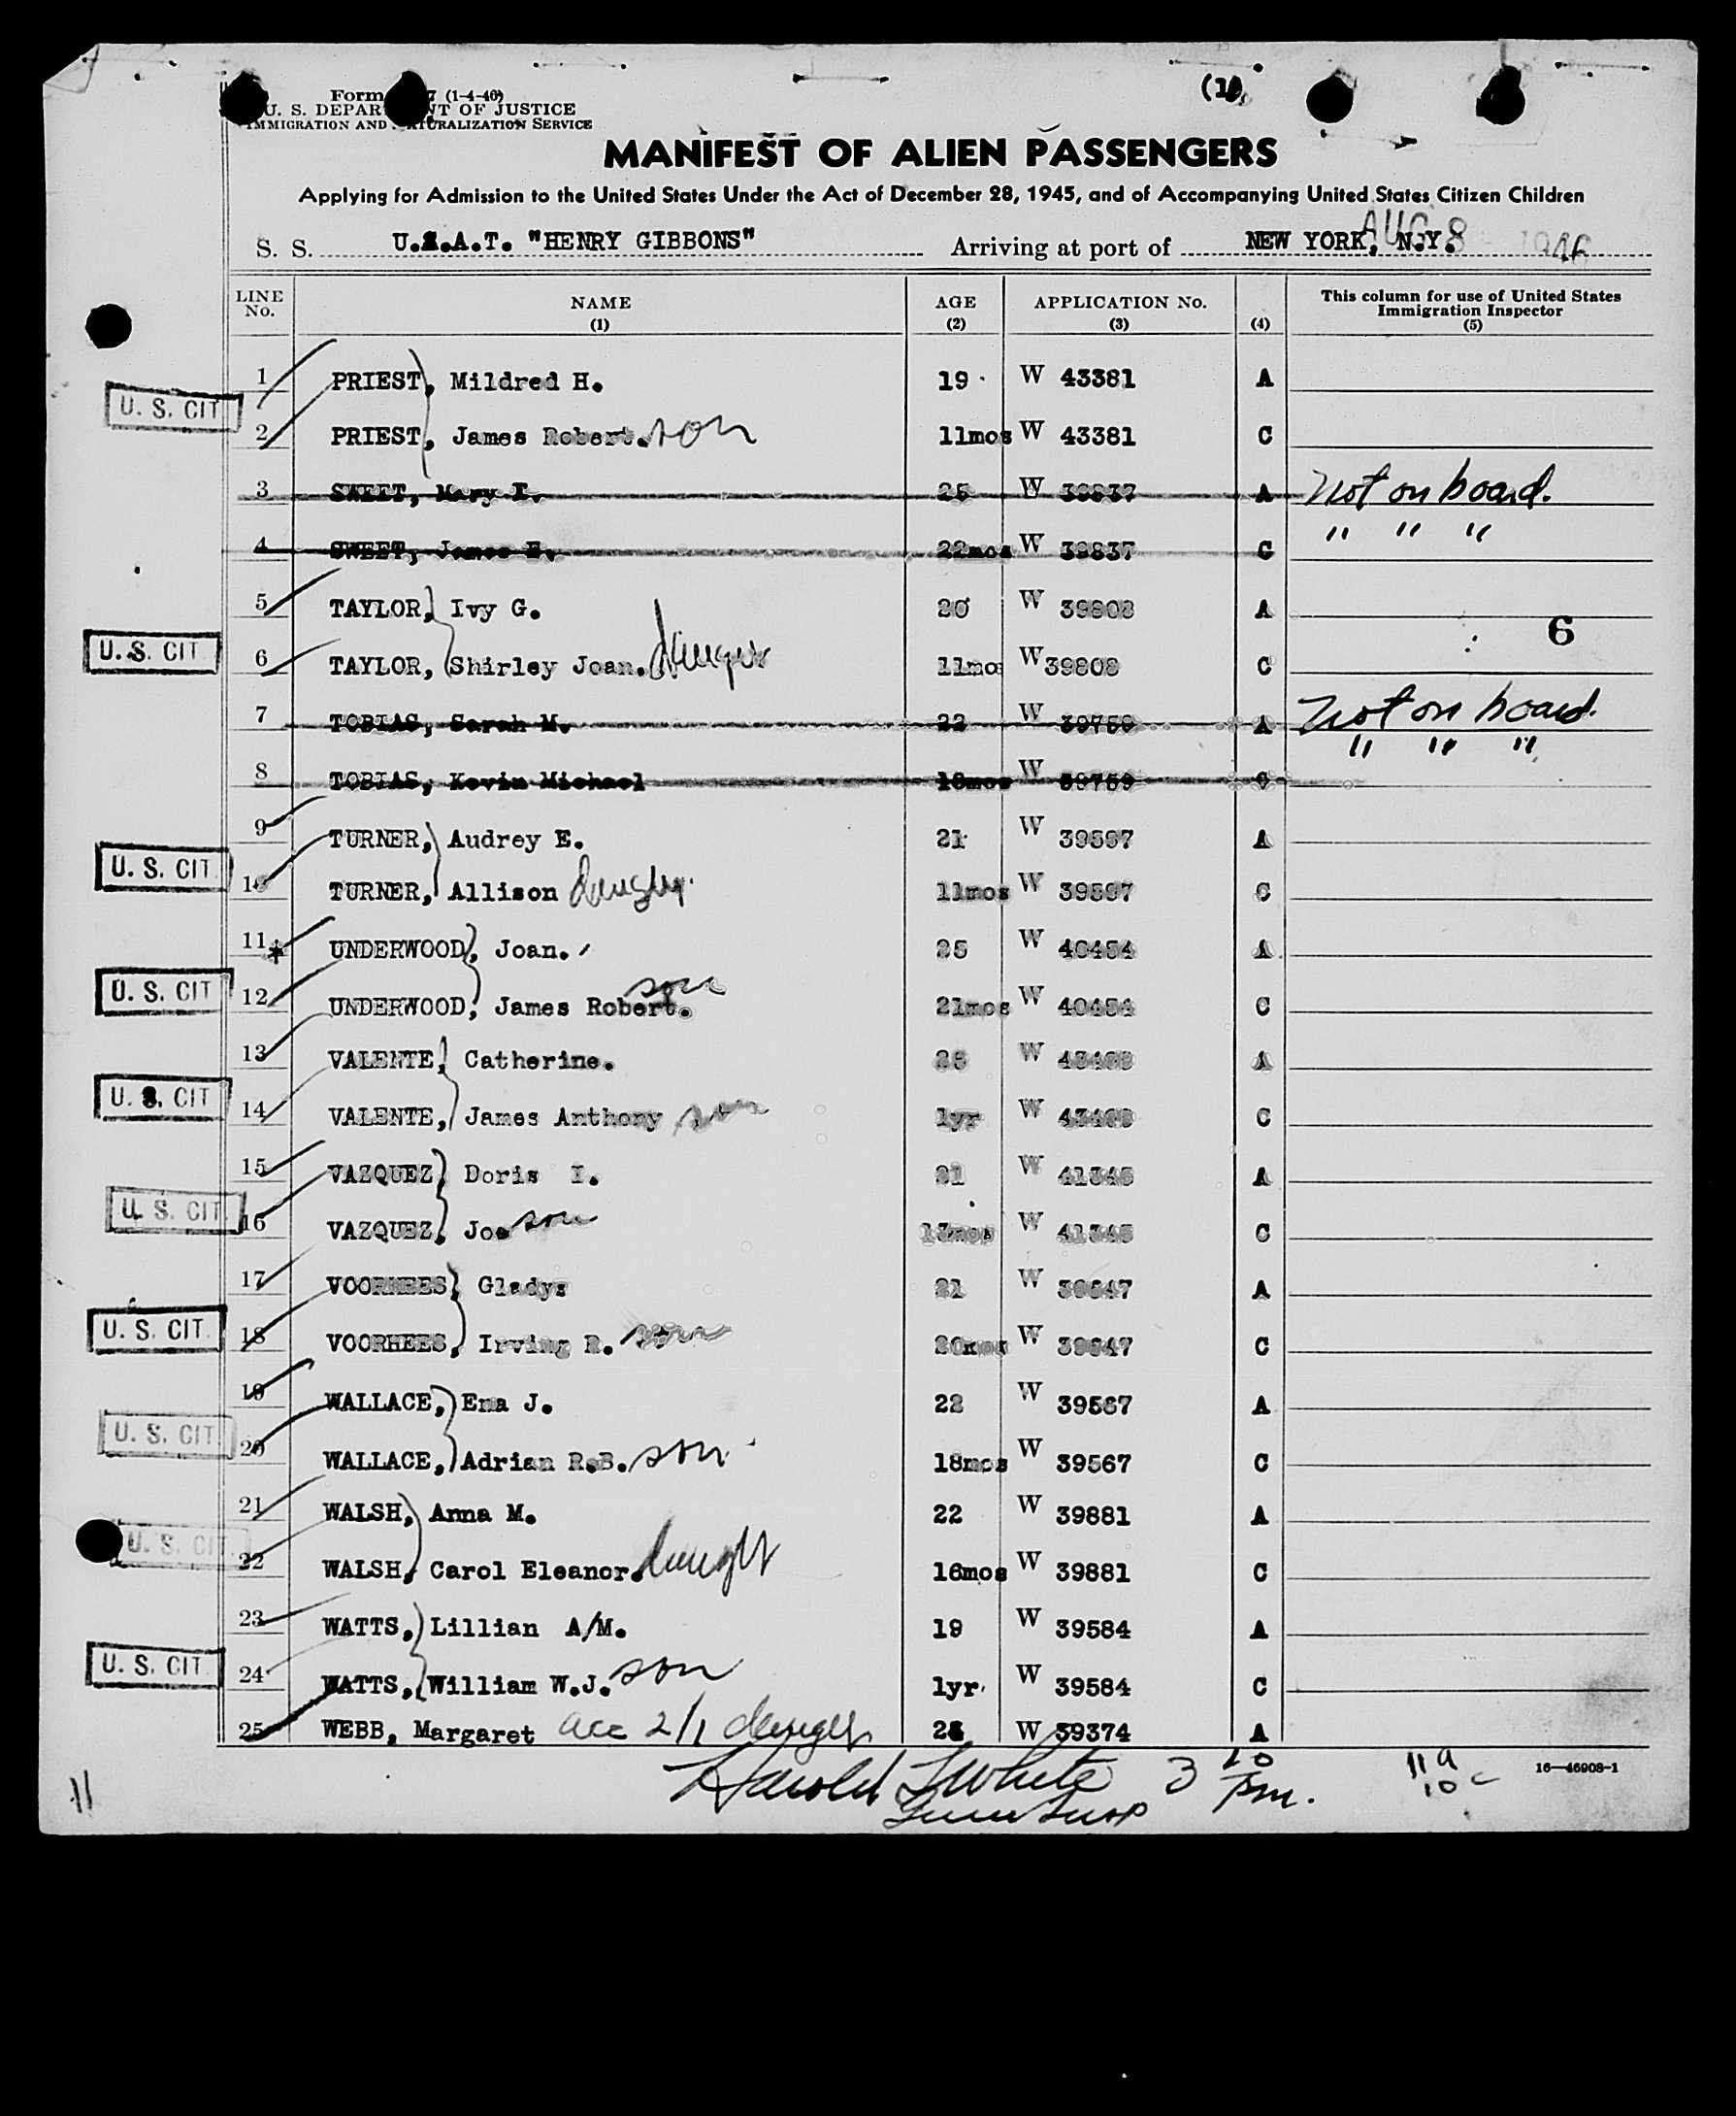 (1-4-46)
U. S. DEPARTMENT OF JUSTICE
IMMIGRATION AND NATURALIZATION SERVICE
MANIFEST OF ALIEN PASSENGERS
Applying for Admission to the United States Under the Act of December 28, 1945, and of Accompanying United States Citizen Children
S. S. U.S.A.T. "HENRY GIBBONS" Arriving at port of NEW YORK, N.Y. AUG 8 1946
LINE No. NAME (1) AGE (2) APPLICATION No. (3) (4) This column for use of United States Immigration Inspector (5)
1 PRIEST, Mildred H. 19 W 43381 A
U. S. CIT
2 PRIEST, James Robert. son 11mos W 43381 C
3 SWEET, Mary 25 W 39837 A Not on board.
4 SWEET, James E. 22mos W 39837 C " " "
5 TAYLOR, Ivy G. 20 W 39808 A
6
U. S. CIT 6 TAYLOR, Shirley Joan. 11mos W 39808 C
7 TOBIAS, Sarah M. 22 W 39759 A Not on board.
8 TOBIAS, Kevin Michael W 39759 C " " "
9 TURNER, Audrey E. 21 W 39597 A
U. S. CIT 10 TURNER, Allison 11mos W 39597 C
11 UNDERWOOD, Joan. 25 W 40454 A
U. S. CIT 12 UNDERWOOD, James Robert. son 21mos W 40454 C
13 VALENTE, Catherine. W A
U. S. CIT 14 VALENTE, James Anthony son 1yr W C
15 VAZQUEZ, Doris I. 21 W 41345 A
U. S. CIT 16 VAZQUEZ, Joe son 13mos W 41345 C
17 VOORHEES, Gladys 21 W 39647 A
U. S. CIT 18 VOORHEES, Irving R. son 20mos W 39647 C
19 WALLACE, Ena J. 22 W 39567 A
U. S. CIT 20 WALLACE, Adrian R.B. son 18mos W 39567 C
21 WALSH, Anna M. 22 W 39881 A
U. S. CIT 22 WALSH, Carol Eleanor. daught 16mos W 39881 C
23 WATTS, Lillian A/M. 19 W 39584 A
U. S. CIT 24 WATTS, William W.J. son 1yr W 39584 C
25 WEBB, Margaret acc 2/1 W 39374 A
Harold White 3 10 Pm. 11 a
10 c
16—46908-1
11